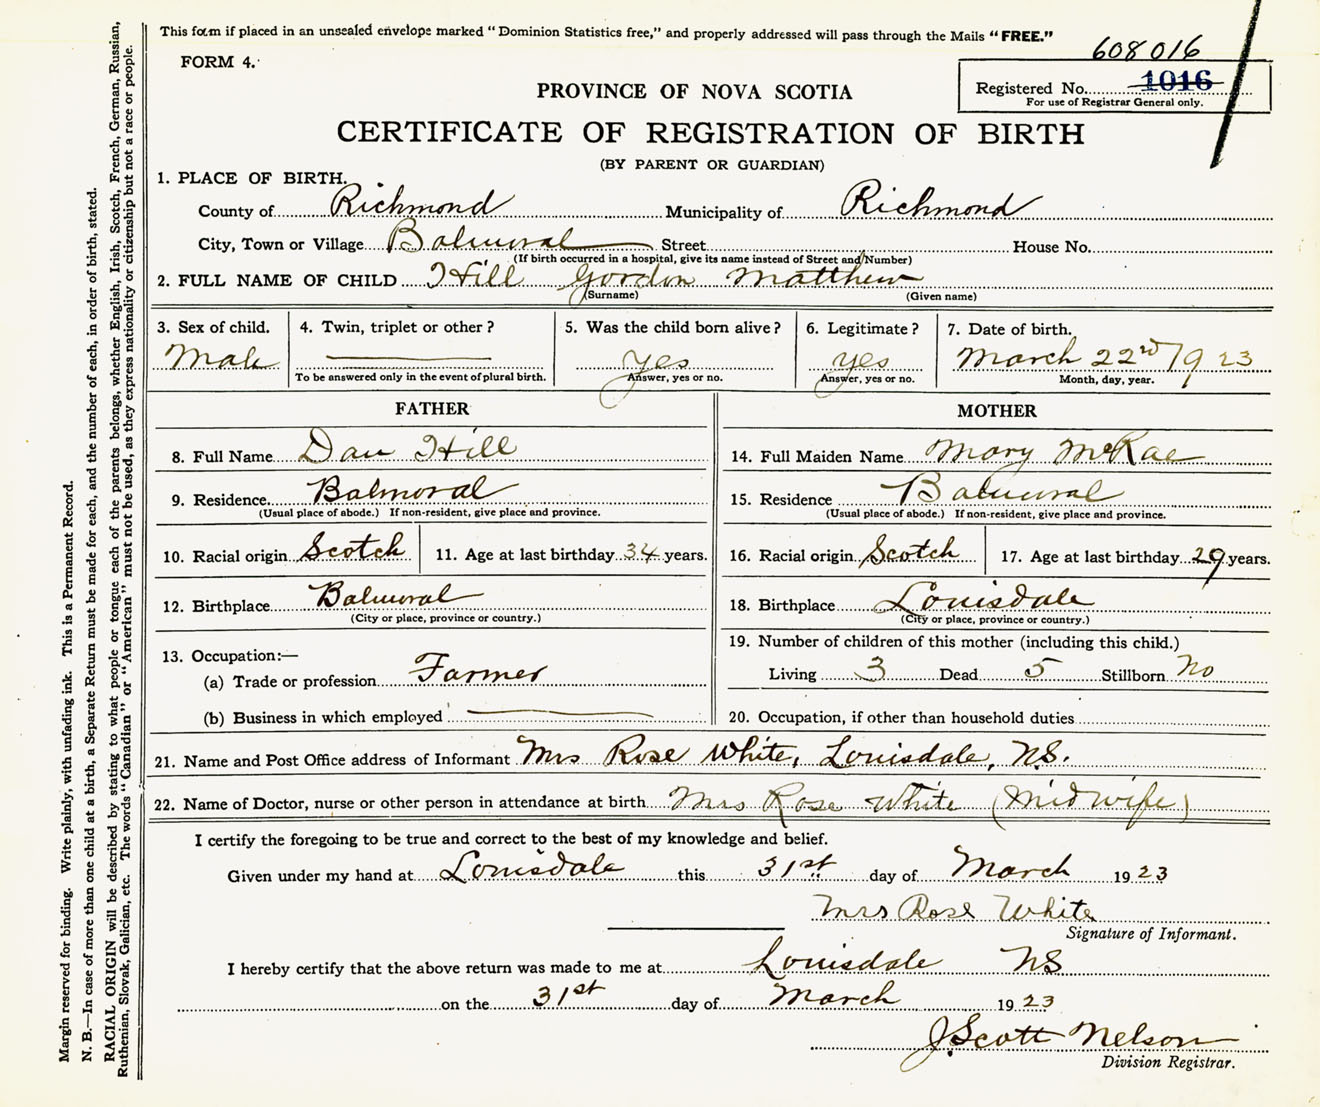 This form if placed in an unsealed envelope marked "Dominion Statistics free," and properly addressed will pass through the Mails "FREE."
608016
FORM 4.
Registered No. 1016
For use of Registrar General only.
PROVINCE OF NOVA SCOTIA
CERTIFICATE OF REGISTRATION OF BIRTH
(BY PARENT OR GUARDIAN)
1. PLACE OF BIRTH.
County of Richmond Municipality of Richmond
City, Town or Village Balmoral Street House No.
(If birth occurred in a hospital, give its name instead of Street and/Number)
2. FULL NAME OF CHILD Hill Gordon Matthew
(Surname) (Given name)
3. Sex of child. 4. Twin, triplet or other? 5. Was the child born alive? 6. Legitimate? 7. Date of birth.
Male yes yes March 22nd 1923
To be answered only in the event of plural birth. Answer, yes or no. Answer, yes or no. Month, day, year.
FATHER MOTHER
8. Full Name Dan Hill 14. Full Maiden Name Mary McRae
9. Residence Balmoral 15. Residence Balmoral
(Usual place of abode.) If non-resident, give place and province. (Usual place of abode.) If non-resident, give place and province.
10. Racial origin Scotch 11. Age at last birthday 34 years. 16. Racial origin Scotch 17. Age at last birthday 29 years.
12. Birthplace Balmoral 18. Birthplace Louisdale
(City or place, province or country.) (City or place, province or country.)
13. Occupation:— 19. Number of children of this mother (including this child.)
(a) Trade or profession Farmer Living 3 Dead 5 Stillborn No
(b) Business in which employed 20. Occupation, if other than household duties
21. Name and Post Office address of Informant Mrs Rose White, Louisdale, N.S.
22. Name of Doctor, nurse or other person in attendance at birth Mrs Rose White (Midwife)
I certify the foregoing to be true and correct to the best of my knowledge and belief.
Given under my hand at Louisdale this 31st day of March 1923
Mrs Rose White
Signature of Informant.
I hereby certify that the above return was made to me at Louisdale NS
on the 31st day of March 1923
J. Scott Nelson
Division Registrar.
Margin reserved for binding. Write plainly, with unfading ink. This is a Permanent Record.
N. B.—In case of more than one child at a birth, a Separate Return must be made for each, and the number of each, in order of birth, stated.
RACIAL ORIGIN will be described by stating to what people or tongue each of the parents belongs, whether English, Irish, Scotch, French, German, Russian,
Ruthenian, Slovak, Galician, etc. The words "Canadian" or "American" must not be used, as they express nationality or citizenship but not a race or people.